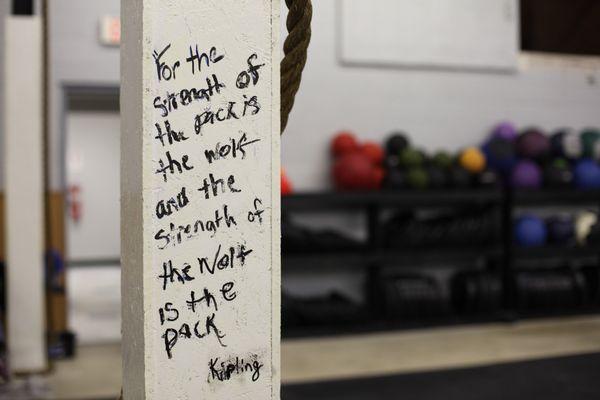 For the
strength of
the pack is
the wolf
and the
strength of
the Wolf
is the
pack
Kipling